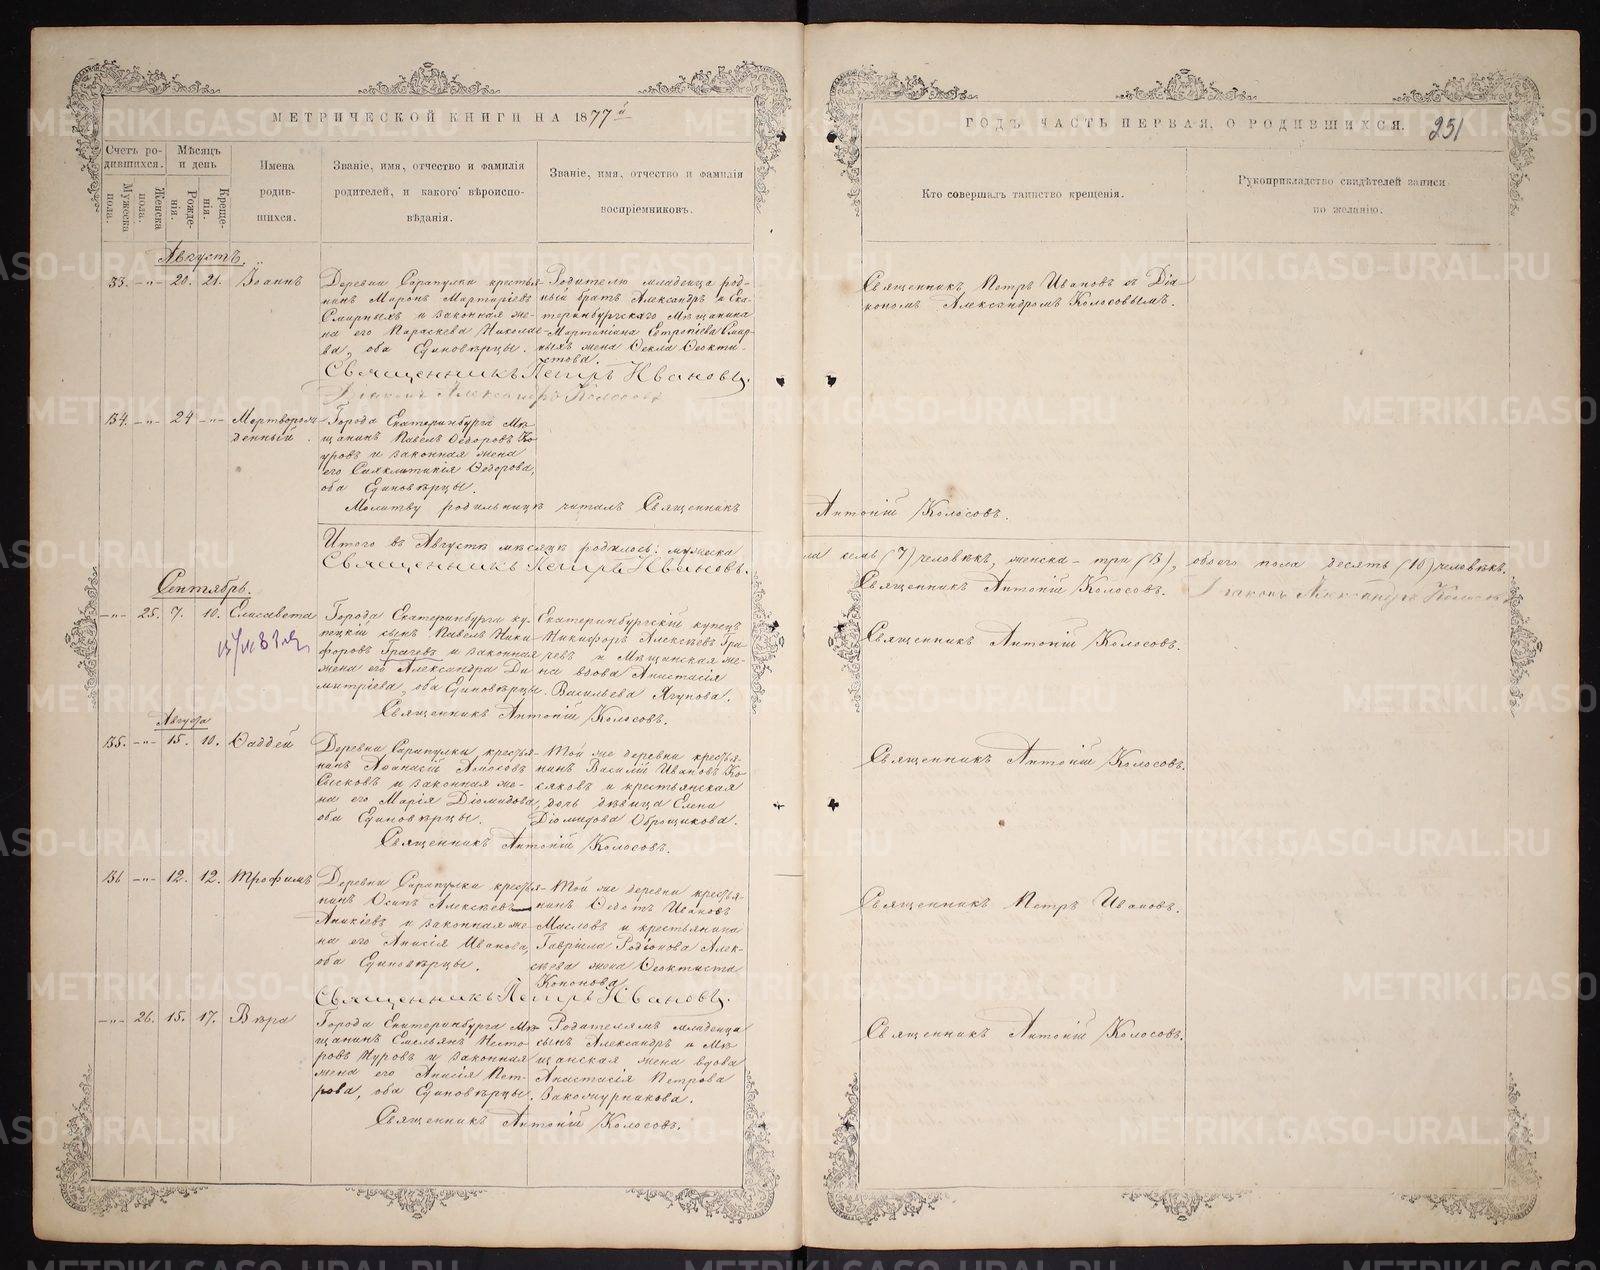 МЕТРИЧЕСКОЙ КНИГИ НА 1877й
ГОДЪ ЧАСТЬ ПЕРВАЯ, О РОДИВШИХСЯ.
251
Счетъ родившихся.
Мужеска пола.
Женска пола.
Мѣсяцъ и день
Рожденія.
Крещенія.
Имена родившихся.
Званіе, имя, отчество и фамилія
родителей, и какого вѣроиспо-
вѣданія.
Званіе, имя, отчество и фамилія
воспріемниковъ.
Кто совершалъ таинство крещенія.
Рукоприкладство свидѣтелей записи
по желанію.
Августъ.
33. -„- 20. 21. Іоаннъ
Деревни Сарапулки крестья-
нинъ Миронъ Мартиріевъ
Смирныхъ и законная же-
на его Параскева Николае-
ва, оба Единовѣрцы.
Родителю младенца род-
ный братъ Александръ и Ека-
теринбургскаго Мѣщанина
Мартиніана Евтропіева Смир-
ныхъ жена Ѳекла Ѳеокти-
стова.
Священникъ Петръ Ивановъ съ Діа-
кономъ Александромъ Колосовымъ.
Священникъ Петръ Ивановъ.
Діаконъ Александръ Колосовъ
34. -„- 24 -„- Мертворож-
денный.
Города Екатеринбурга Мѣ-
щанинъ Павелъ Ѳедоровъ
и законная жена
его Синклитикія Ѳедорова,
оба Единовѣрцы.
Молитву родильницѣ читалъ Священникъ Антоній Колосовъ.
Итого въ Августѣ мѣсяцѣ родилось: мужска семь (7) человѣкъ, женска - три (3), обоего пола десять (10) человѣкъ.
Священникъ Петръ Ивановъ.
Священникъ Антоній Колосовъ. Діаконъ Александръ Колосовъ
Сентябрь.
-„- 25. 7. 10. Елисавета
Города Екатеринбурга ку-
пецкій сынъ Павелъ Ники-
форовъ Грачевъ и законная
жена его Александра Ди-
митріева, оба Единовѣрцы.
Екатеринбургскій купецъ
Никифоръ Алексѣевъ Гра-
чевъ и Мѣщанская же-
на вдова Анастасія
Васильева Ягунова.
Священникъ Антоній Колосовъ.
Священникъ Антоній Колосовъ.
Августа
35. -„- 15. 10. Ѳаддей
Деревни Сарапулки крестья-
нинъ Аѳанасій Амосовъ
Сысковъ и законная же-
на его Марія Діомидова,
оба Единовѣрцы.
Той же деревни крестья-
нинъ Василій Ивановъ Ко-
сяковъ и крестьянская
дочь дѣвица Елена
Діомидова Оброщикова.
Священникъ Антоній Колосовъ.
Священникъ Антоній Колосовъ.
36 -„- 12. 12. Трофимъ
Деревни Сарапулки крестья-
нинъ Осипъ Алексѣевъ
Аникіевъ и законная же-
на его Анисія Иванова,
оба Единовѣрцы.
Той же деревни крестья-
нинъ Ѳедотъ Ивановъ
Масловъ и крестьянина
Гавріила Родіонова Алек-
сѣева жена Ѳеоктиста
Кононова.
Священникъ Петръ Ивановъ.
Священникъ Петръ Ивановъ.
-„- 26. 15. 17. Вѣра
Города Екатеринбурга Мѣ-
щанинъ Емельянъ Несто-
ровъ и законная
жена его Анисія Пет-
рова, оба Единовѣрцы.
Родителямъ младенца
сынъ Александръ и Мѣ-
щанская жена вдова
Анастасія Петрова
Закожурникова.
Священникъ Антоній Колосовъ.
Священникъ Антоній Колосовъ.
METRIKI.GASO-URAL.RU